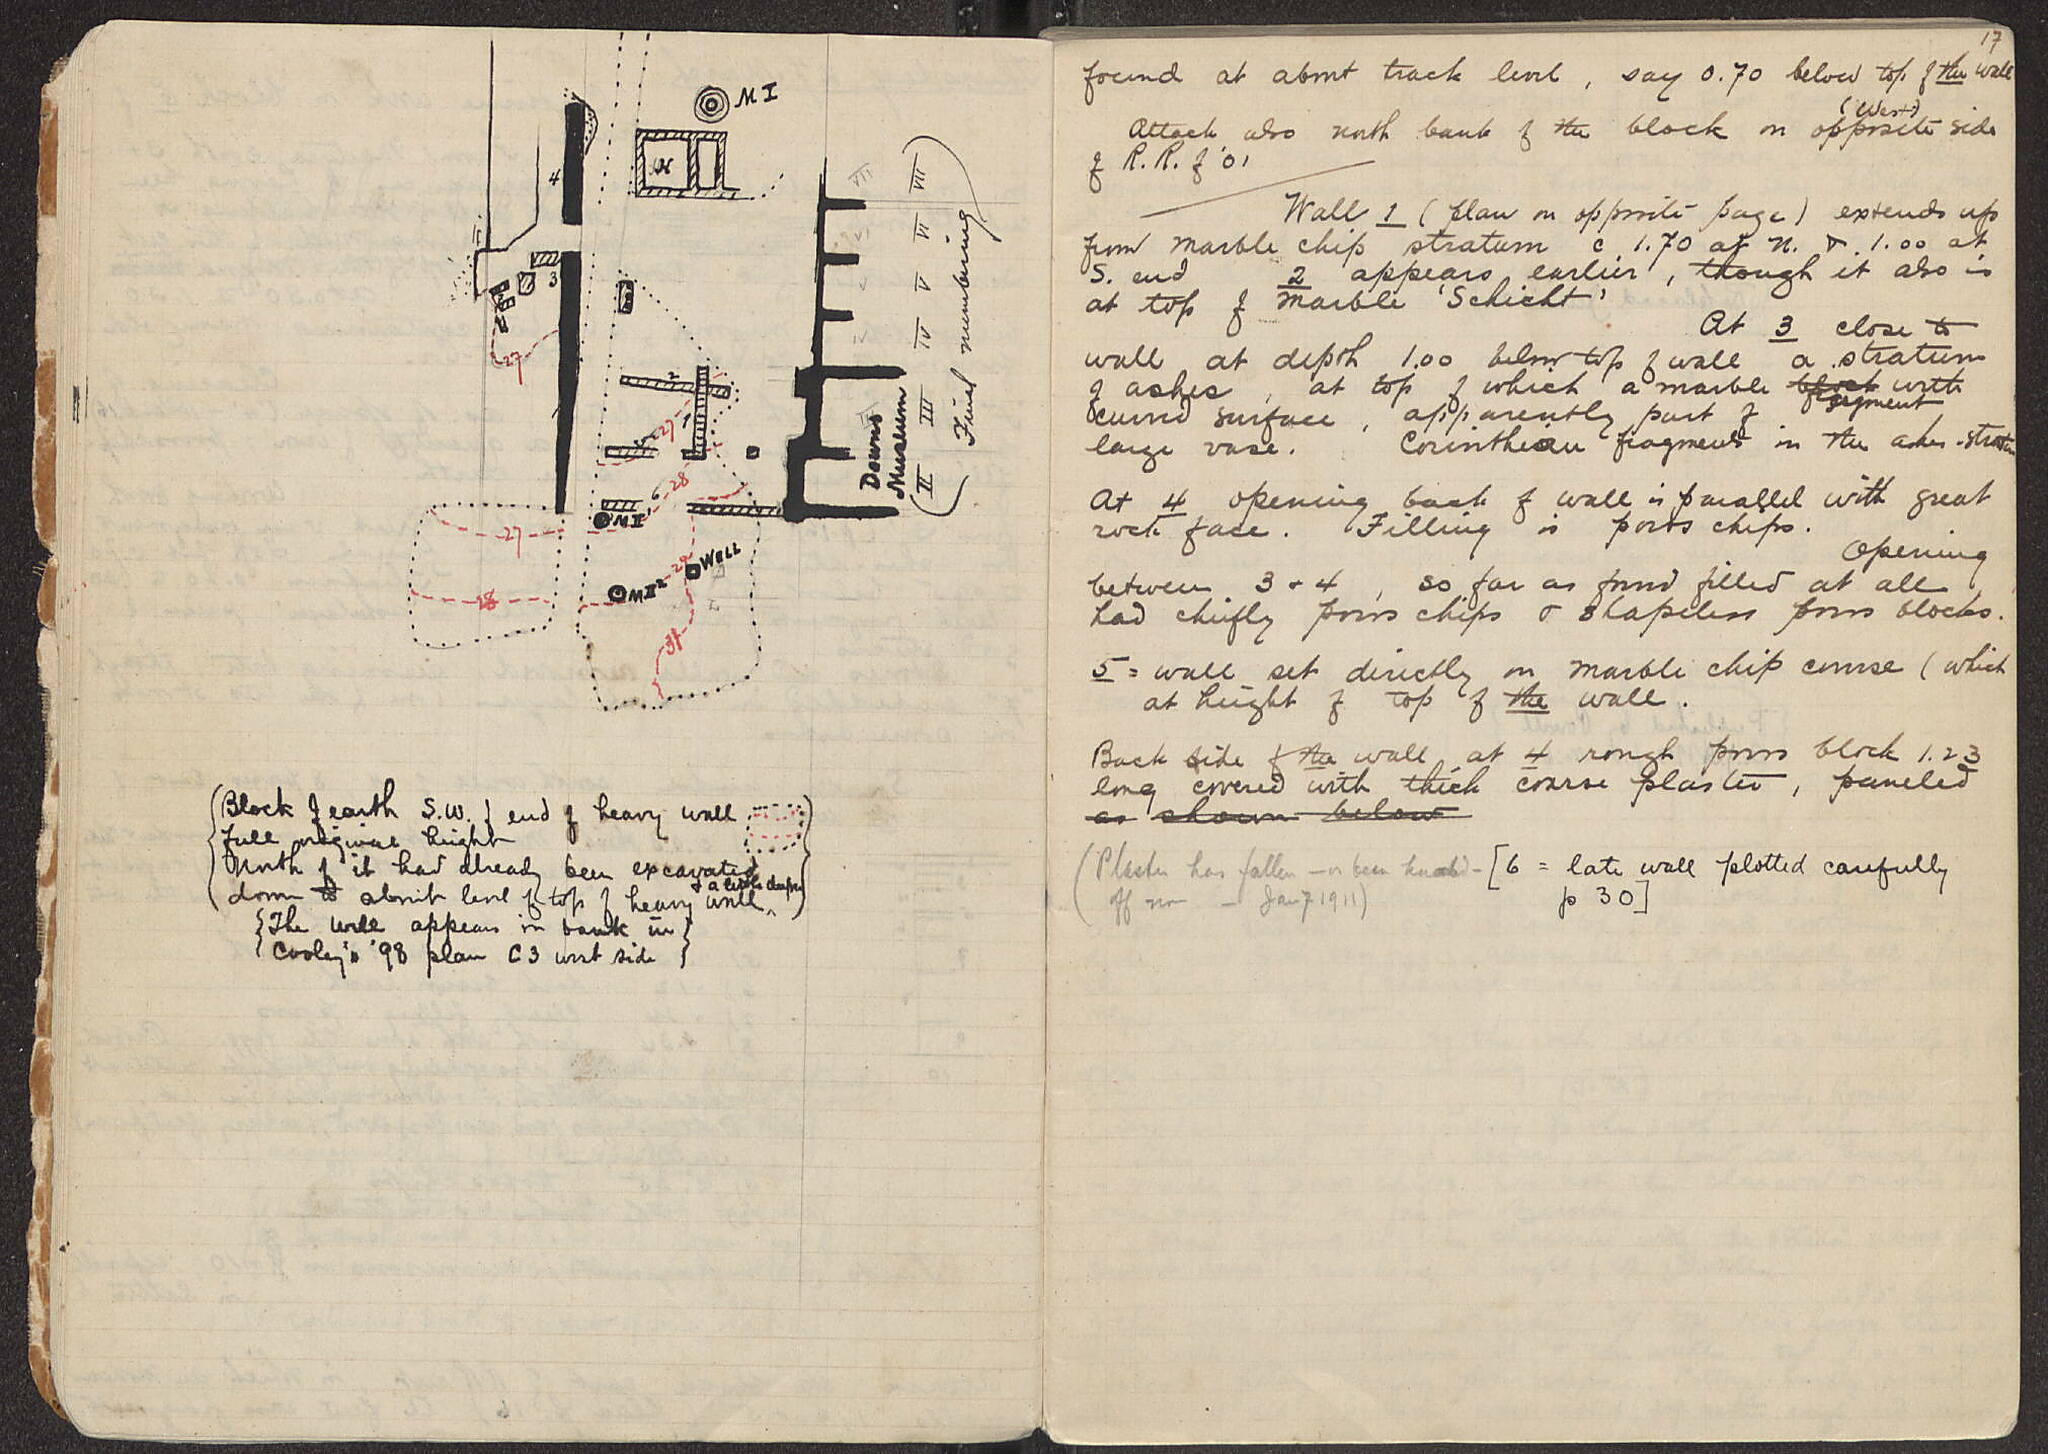 M I
N
4
3
27
2
1
5
27
28
6
M II¹
27
29
Well
M II²
28
31
Downs
Museum
VII
VI
V
IV
III
II
VII
VI
V
IV
III
(Final numbering)
{Block of earth S.W. of end of heavy wall
full original height
North of it had already been excavated
down to about level of top of heavy wall, & a little deeper}
{The well appears in bank in
Cooley's '98 plan C3 west side}
17
found at about track level, say 0.70 below top of the wall
(West)
Attack also north bank of the block on opposite side
of R.R. of '01
Wall 1 (plan on opposite page) extends up
from marble chip stratum c 1.70 at N. & 1.00 at
S. end 2 appears earlier, though it also is
at top of marble 'Schicht'
At 3 close to
wall at depth 1.00 below top of wall a stratum
of ashes, at top of which a marble block with
fragment
curved surface, apparently part of
large vase. Corinthian fragments in the ashes-stratum
At 4 opening back of wall is parallel with great
rock face. Filling is poros chips.
Opening
between 3 + 4, so far as found filled at all
had chiefly poros chips & shapeless poros blocks.
5 = wall set directly on marble chip course (which
at height of top of the wall.
Back side of the wall at 4 rough poros block 1.23
long covered with thick coarse plaster, paneled
as shown below
(Plaster has fallen – or been knocked –
off now – Jan 7 1911)
[6 = late wall plotted carefully
p 30]